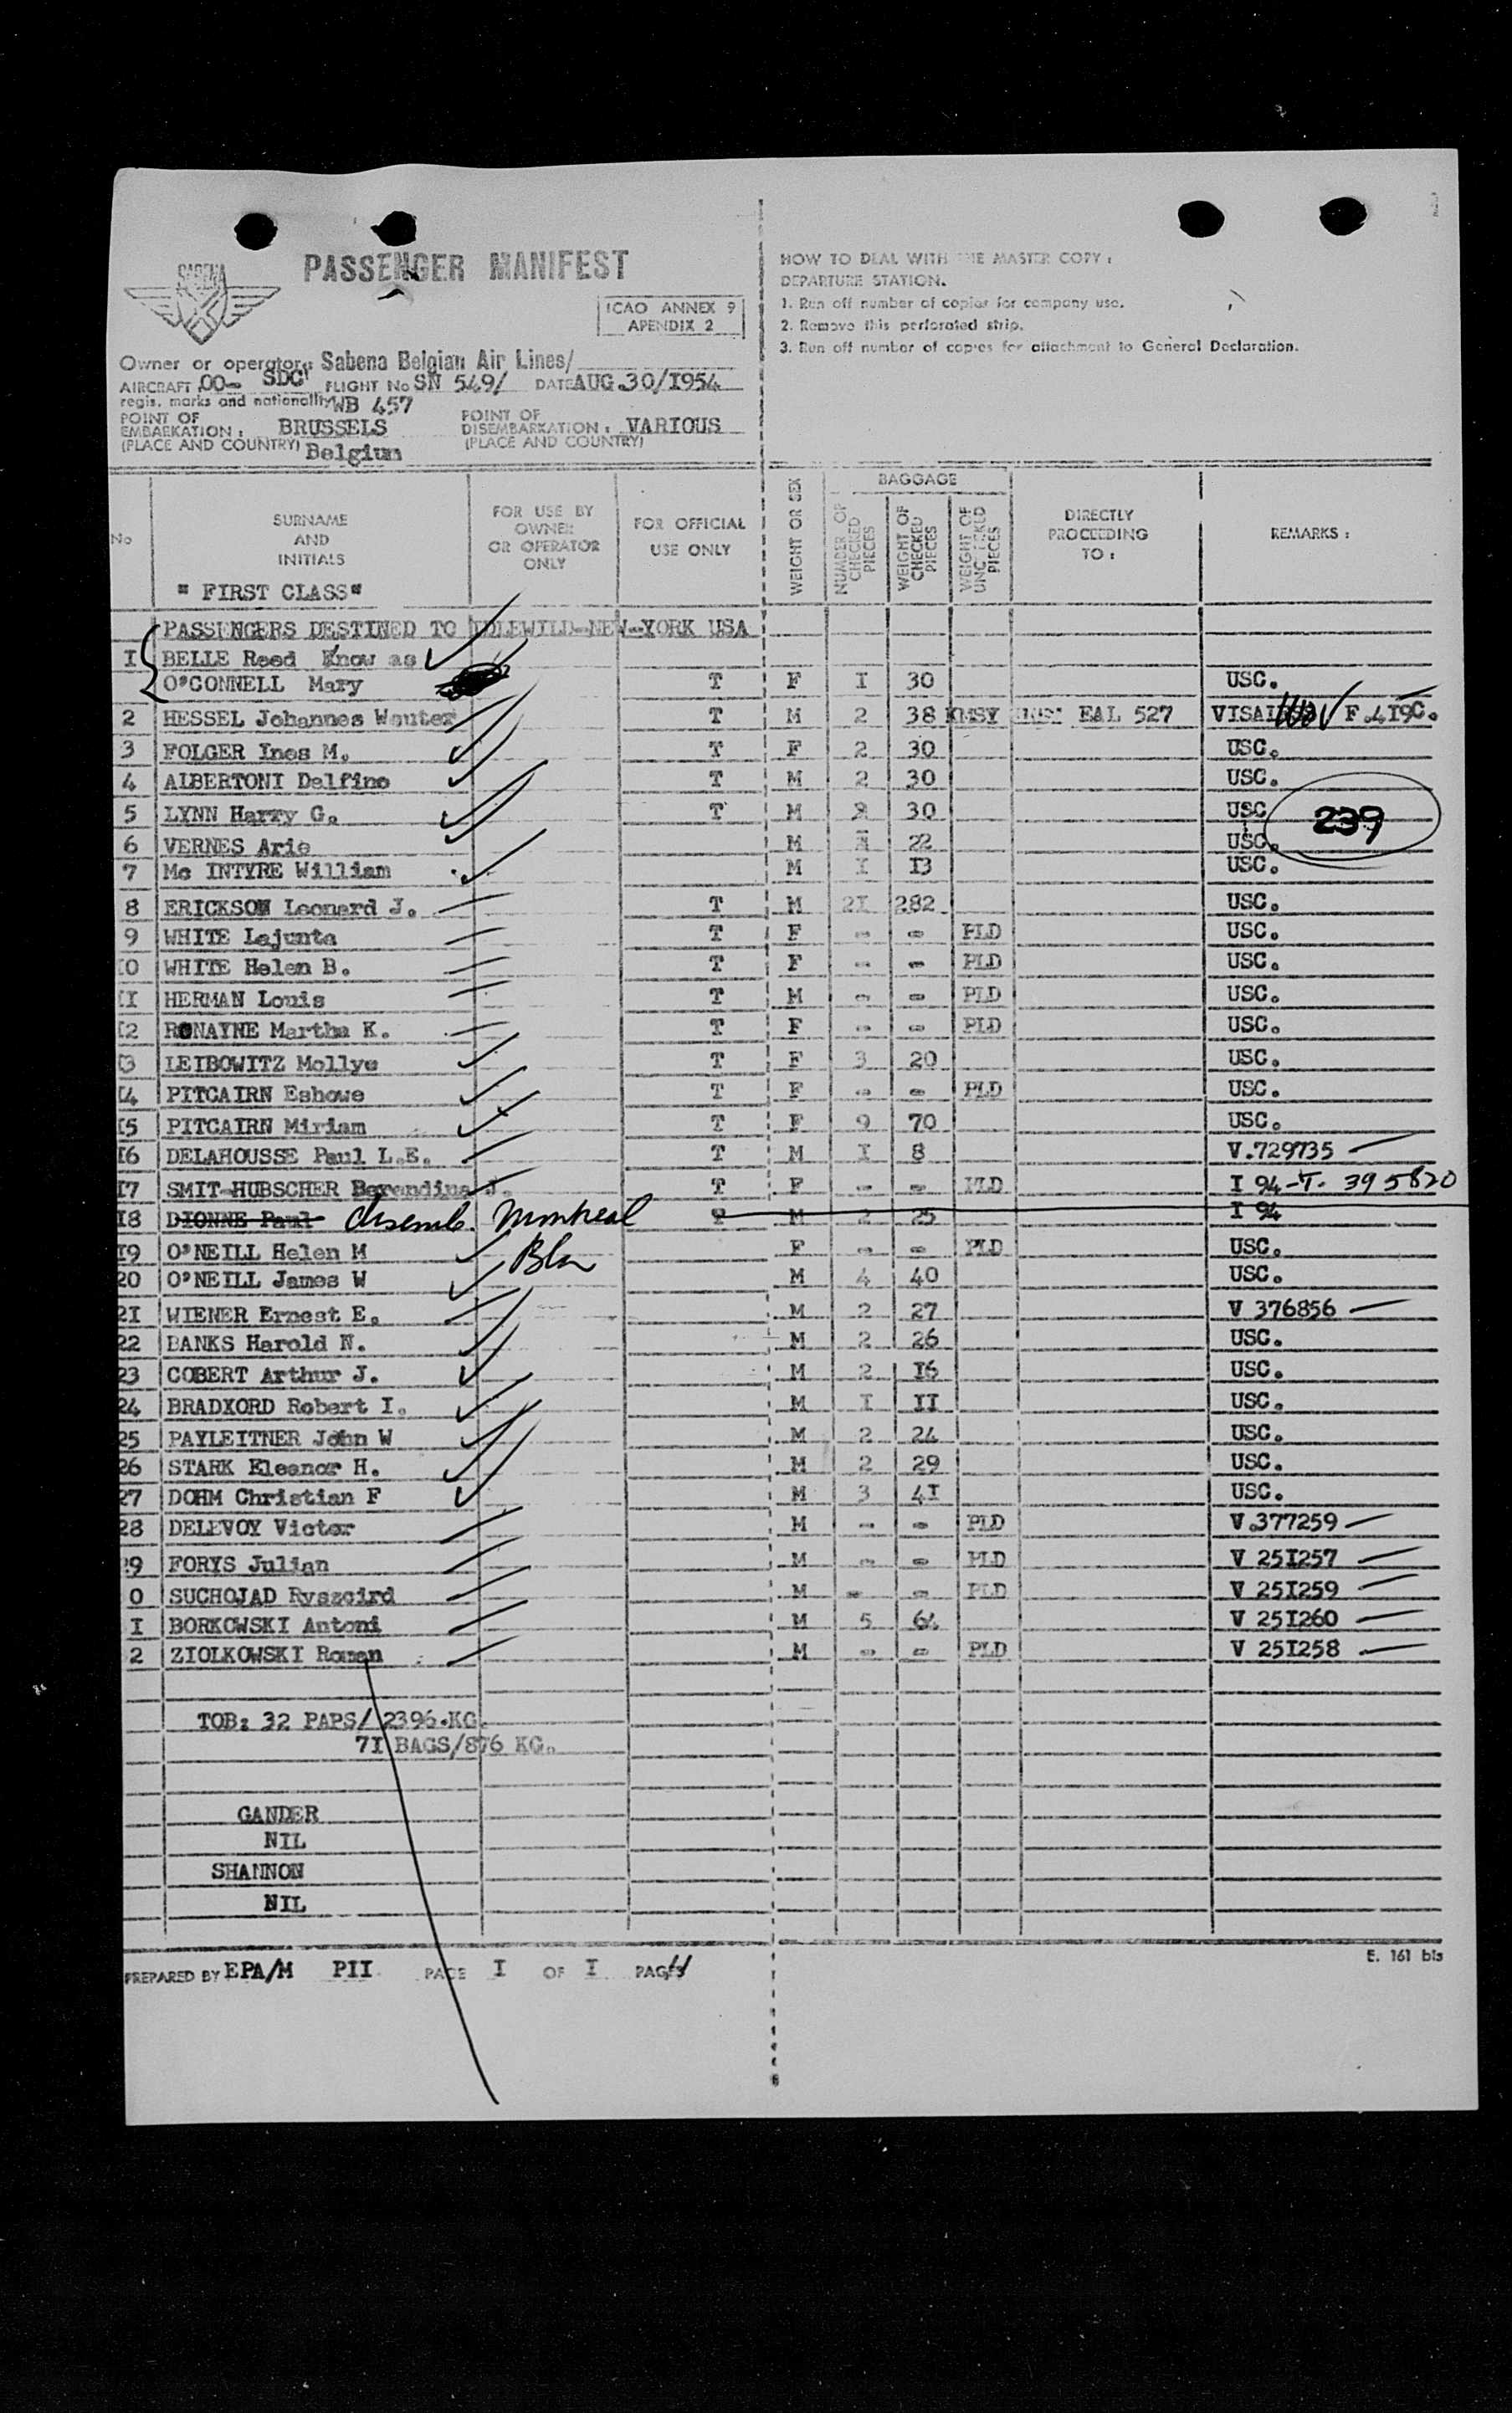 SABENA
PASSENGER MANIFEST
ICAO ANNEX 9
APENDIX 2
Owner or operator: Sabena Belgian Air Lines/
AIRCRAFT OO- SDC FLIGHT No SN 549/ DATE AUG.30/I954
regis. marks and nationality WB 457
POINT OF EMBARKATION: BRUSSELS POINT OF DISEMBARKATION: VARIOUS
(PLACE AND COUNTRY) Belgium (PLACE AND COUNTRY)
HOW TO DEAL WITH THE MASTER COPY:
DEPARTURE STATION.
1. Run off number of copies for company use.
2. Remove this perforated strip.
3. Run off number of copies for attachment to General Declaration.
No SURNAME AND INITIALS FOR USE BY OWNER OR OPERATOR ONLY FOR OFFICIAL USE ONLY WEIGHT OR SEX BAGGAGE NUMBER OF CHECKED PIECES WEIGHT OF CHECKED PIECES WEIGHT OF UNCHECKED PIECES DIRECTLY PROCEEDING TO: REMARKS:
" FIRST CLASS"
PASSENGERS DESTINED TO IDLEWILD-NEW-YORK USA
I BELLE Reed Know as
O'CONNELL Mary T F I 30 USC.
2 HESSEL Johannes Wouter T M 2 38 KMSY EAL 527 F.4I9C.
3 FOLGER Ines M. T F 2 30 USC.
4 ALBERTONI Delfino T M 2 30 USC.
5 LYNN Harry G. T M 2 30 USC
239
6 VERNES Arie M 22 USC.
7 Mc INTYRE William M I I3 USC.
8 ERICKSON Leonard J. T M 2I 282 USC.
9 WHITE Lajunta T F - - PLD USC.
I0 WHITE Helen B. T F - - PLD USC.
II HERMAN Louis T M - - PLD USC.
I2 RONAYNE Martha K. T F - - PLD USC.
I3 LEIBOWITZ Mollye T F 3 20 USC.
I4 PITCAIRN Eshowe T F - - PLD USC.
I5 PITCAIRN Miriam T F 9 70 USC.
I6 DELAHOUSSE Paul L.E. T M I 8 V.729735
I7 SMIT-HUBSCHER Berendina J. T F - - PLD I 94-T. 395820
I8 DIONNE Paul disemb. Montreal T M 2 25 I 94
I9 O'NEILL Helen M F - - PLD USC.
20 O'NEILL James W M 4 40 USC.
2I WIENER Ernest E. M 2 27 V 376856
22 BANKS Harold N. M 2 26 USC.
23 COBERT Arthur J. M 2 I6 USC.
24 BRADXORD Robert I. M I II USC.
25 PAYLEITNER John W M 2 24 USC.
26 STARK Eleanor H. M 2 29 USC.
27 DOHM Christian F M 3 4I USC.
28 DELEVOY Victor M - - PLD V.377259
9 FORYS Julian M - - PLD V 25I257
0 SUCHOJAD Ryszcird M - - PLD V 25I259
I BORKOWSKI Antoni M 5 64 V 25I260
2 ZIOLKOWSKI Roman M - - PLD V 25I258
TOB: 32 PAPS/ 2396.KG.
7I BAGS/876 KG.
GANDER
NIL
SHANNON
NIL
PREPARED BY EPA/M PII PAGE I OF I PAGES
E. 161 bis